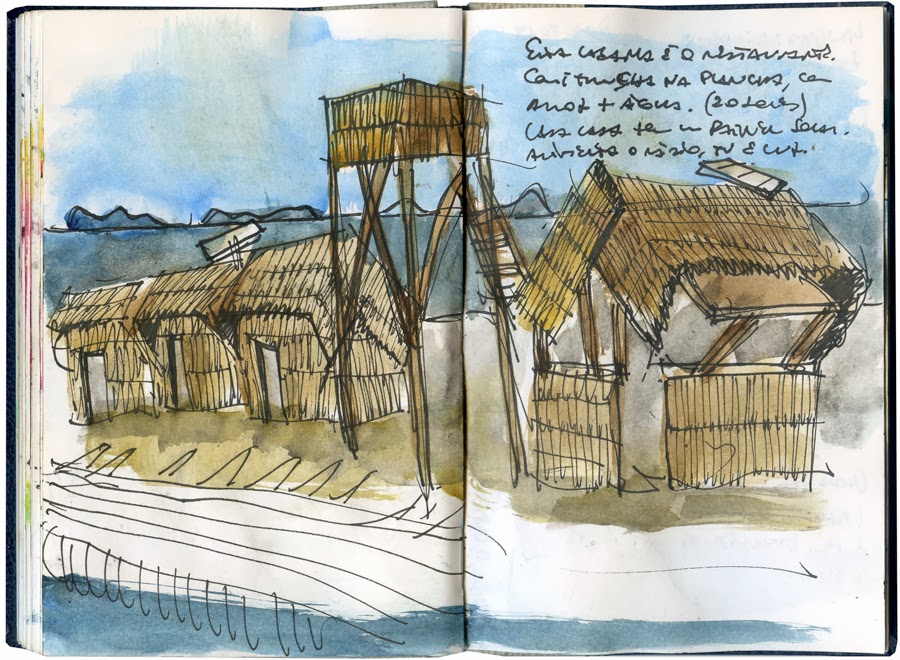 ESTA CABANA É O RESTAURANTE.
COMI TRUCHA NA PLANCHA, com
ARROZ + ÁGUA. (20 soles)
CADA CASA tem um PAINEL SOLAR.
ALIMENTA O RÁDIO, TV E LUZ.